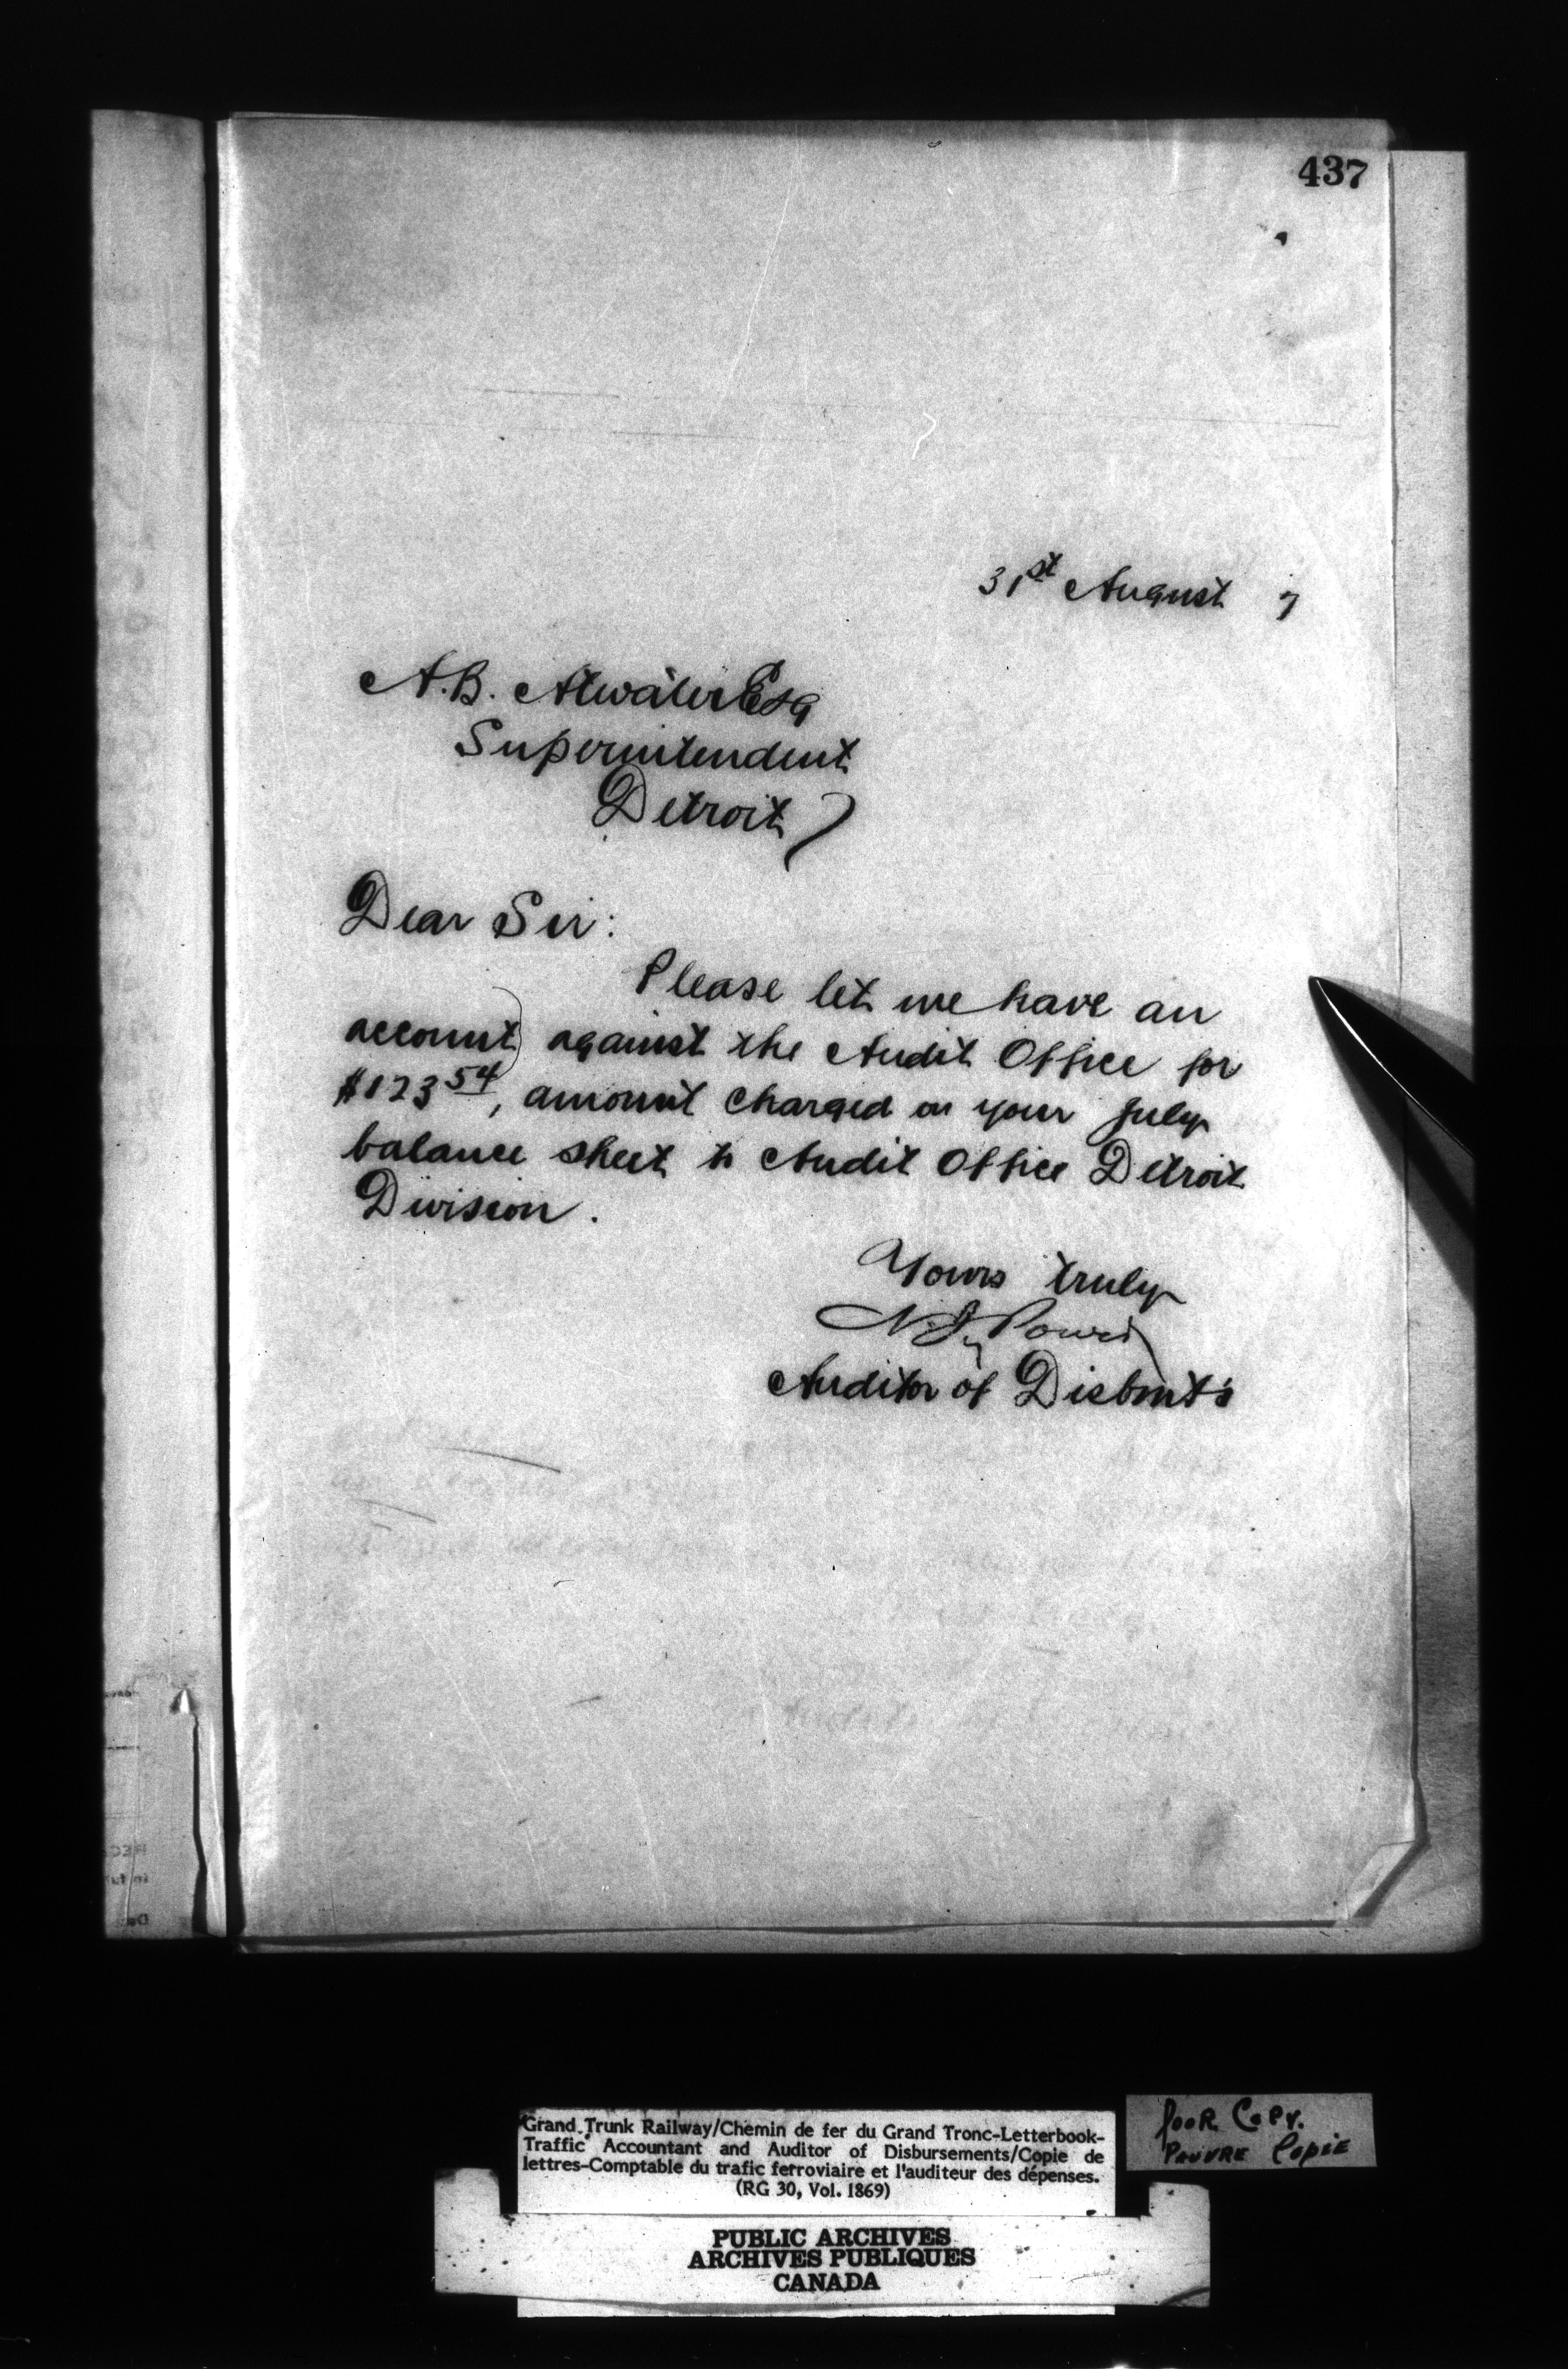 437
31st August 7
A.B. Atwater Esq
Superintendent
Detroit
Dear Sir:
Please let me have an
account against the Audit Office for
$123 54, amount charged on your July
balance sheet to Audit Office Detroit
Division.
Yours truly
N. J. Power
Auditor of Disbmt's
Grand Trunk Railway/Chemin de fer du Grand Tronc-Letterbook-
Traffic Accountant and Auditor of Disbursements/Copie de
lettres-Comptable du trafic ferroviaire et l'auditeur des dépenses.
(RG 30, Vol. 1869)
Poor Copy.
Pauvre Copie
PUBLIC ARCHIVES
ARCHIVES PUBLIQUES
CANADA